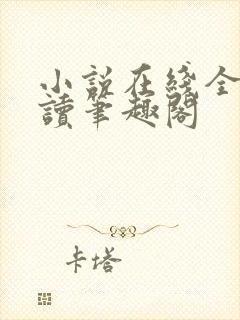 小説在綫全
讀筆趣閣
卡塔